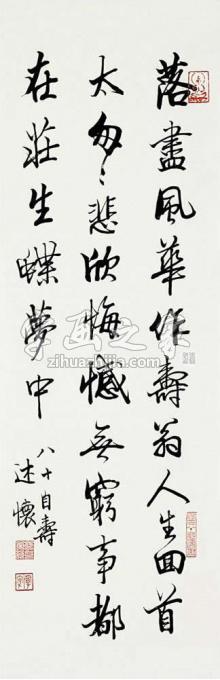 落盡風華作壽翁人生回首
太匆匆悲欣悔憾無窮事都
在莊生蝶夢中
八十自壽
述懷
字画之家
zihuazhijia.com